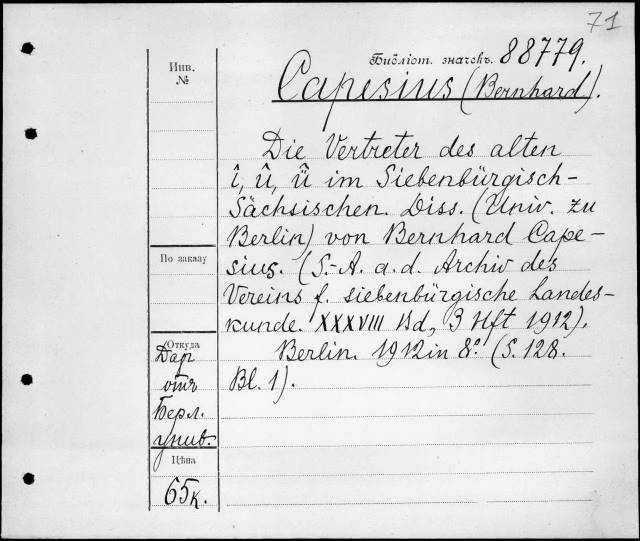 71
Библіот. значекъ. 88779.
Инв.
№
Capesius (Bernhard).
Die Vertreter des alten
î, û, ü̂ im Siebenbürgisch-
Sächsischen. Diss. (Univ. zu
Berlin) von Bernhard Cape-
sius. (S.-A. a. d. Archiv des
Vereins f. siebenbürgische Landes-
kunde. XXXVIII Bd, 3 Hft 1912).
Berlin. 1912 in 8º. (S. 128.
Bl. 1).
По заказу
Откуда
Дар
отъ
Берл.
унив.
Цѣна
65к.